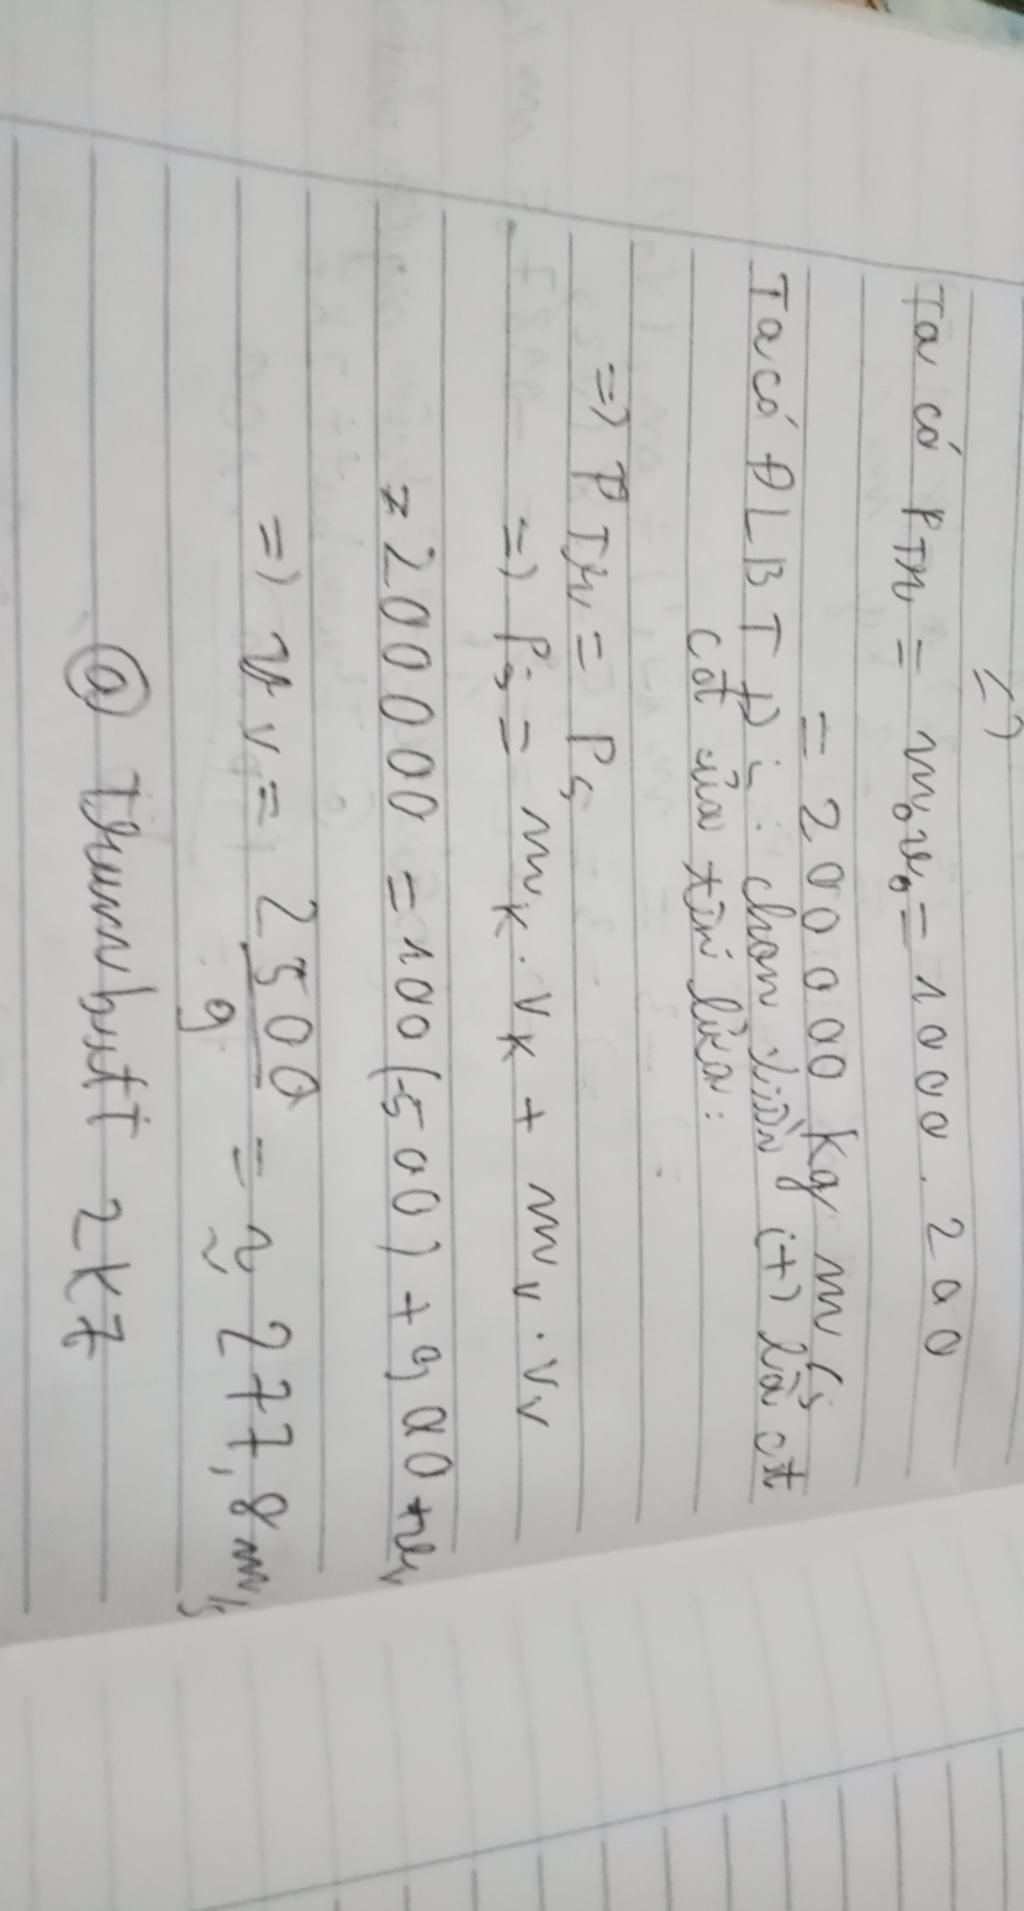 =)
Ta có PTr = m₀v₀ = 1000 . 200
= 200 000 kg m/s
Ta có ĐLBT Đ : chọn chiều (+) là cđ
cđ của tên lửa:
=) PTr = Ps
=) Ps = mK . vK + mv . vv
= 200000 = 100 (-500) + 900 * vv
=) vv = 2500/9 = ≈ 277,8 m/s
@ Thumbutt 2k7